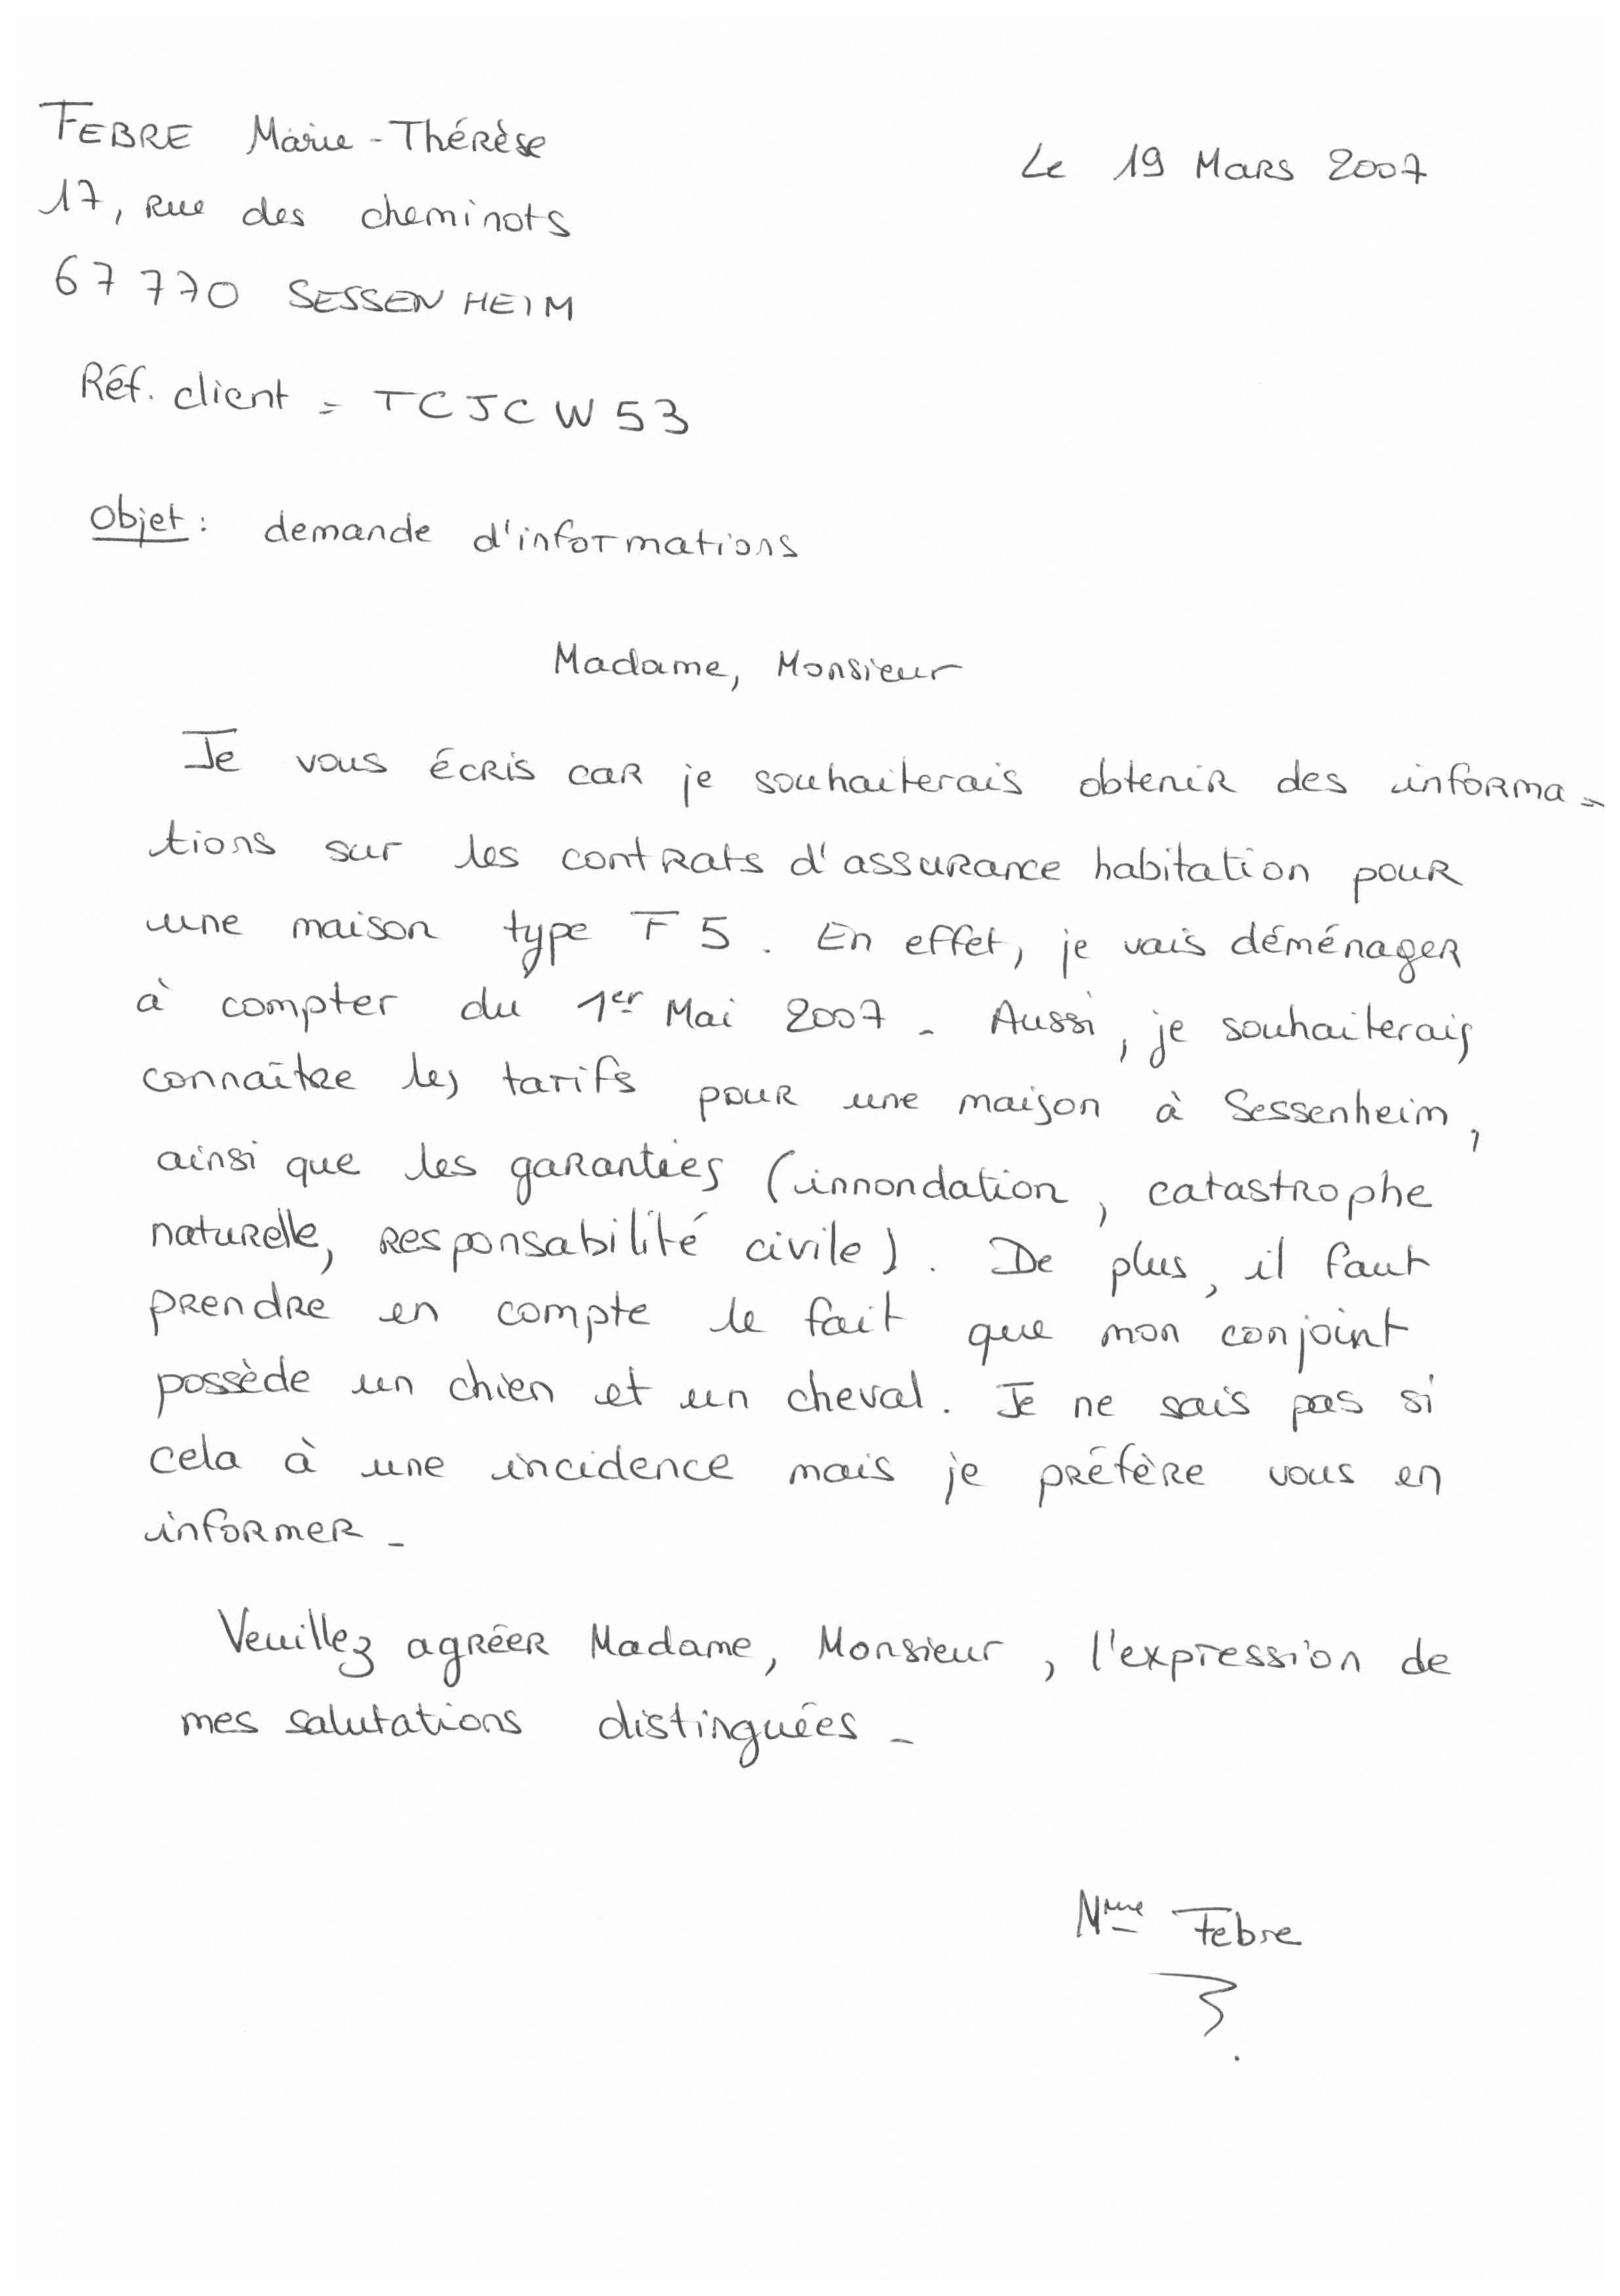 FEBRE Marie-Thérèse
Le 19 Mars 2007
17, Rue des cheminots
67 770 SESSENHEIM
Réf. client = TCJCW53
Objet : demande d'informations
Madame, Monsieur
Je vous écris car je souhaiterais obtenir des informa-
tions sur les contrats d'assurance habitation pour
une maison type F5. En effet, je vais déménager
à compter du 1er Mai 2007. Aussi, je souhaiterais
connaître les tarifs pour une maison à Sessenheim,
ainsi que les garanties (innondation, catastrophe
naturelle, responsabilité civile). De plus, il faut
prendre en compte le fait que mon conjoint
possède un chien et un cheval. Je ne sais pas si
cela à une incidence mais je préfère vous en
informer.
Veuillez agréer Madame, Monsieur, l'expression de
mes salutations distinguées.
Mme Febre